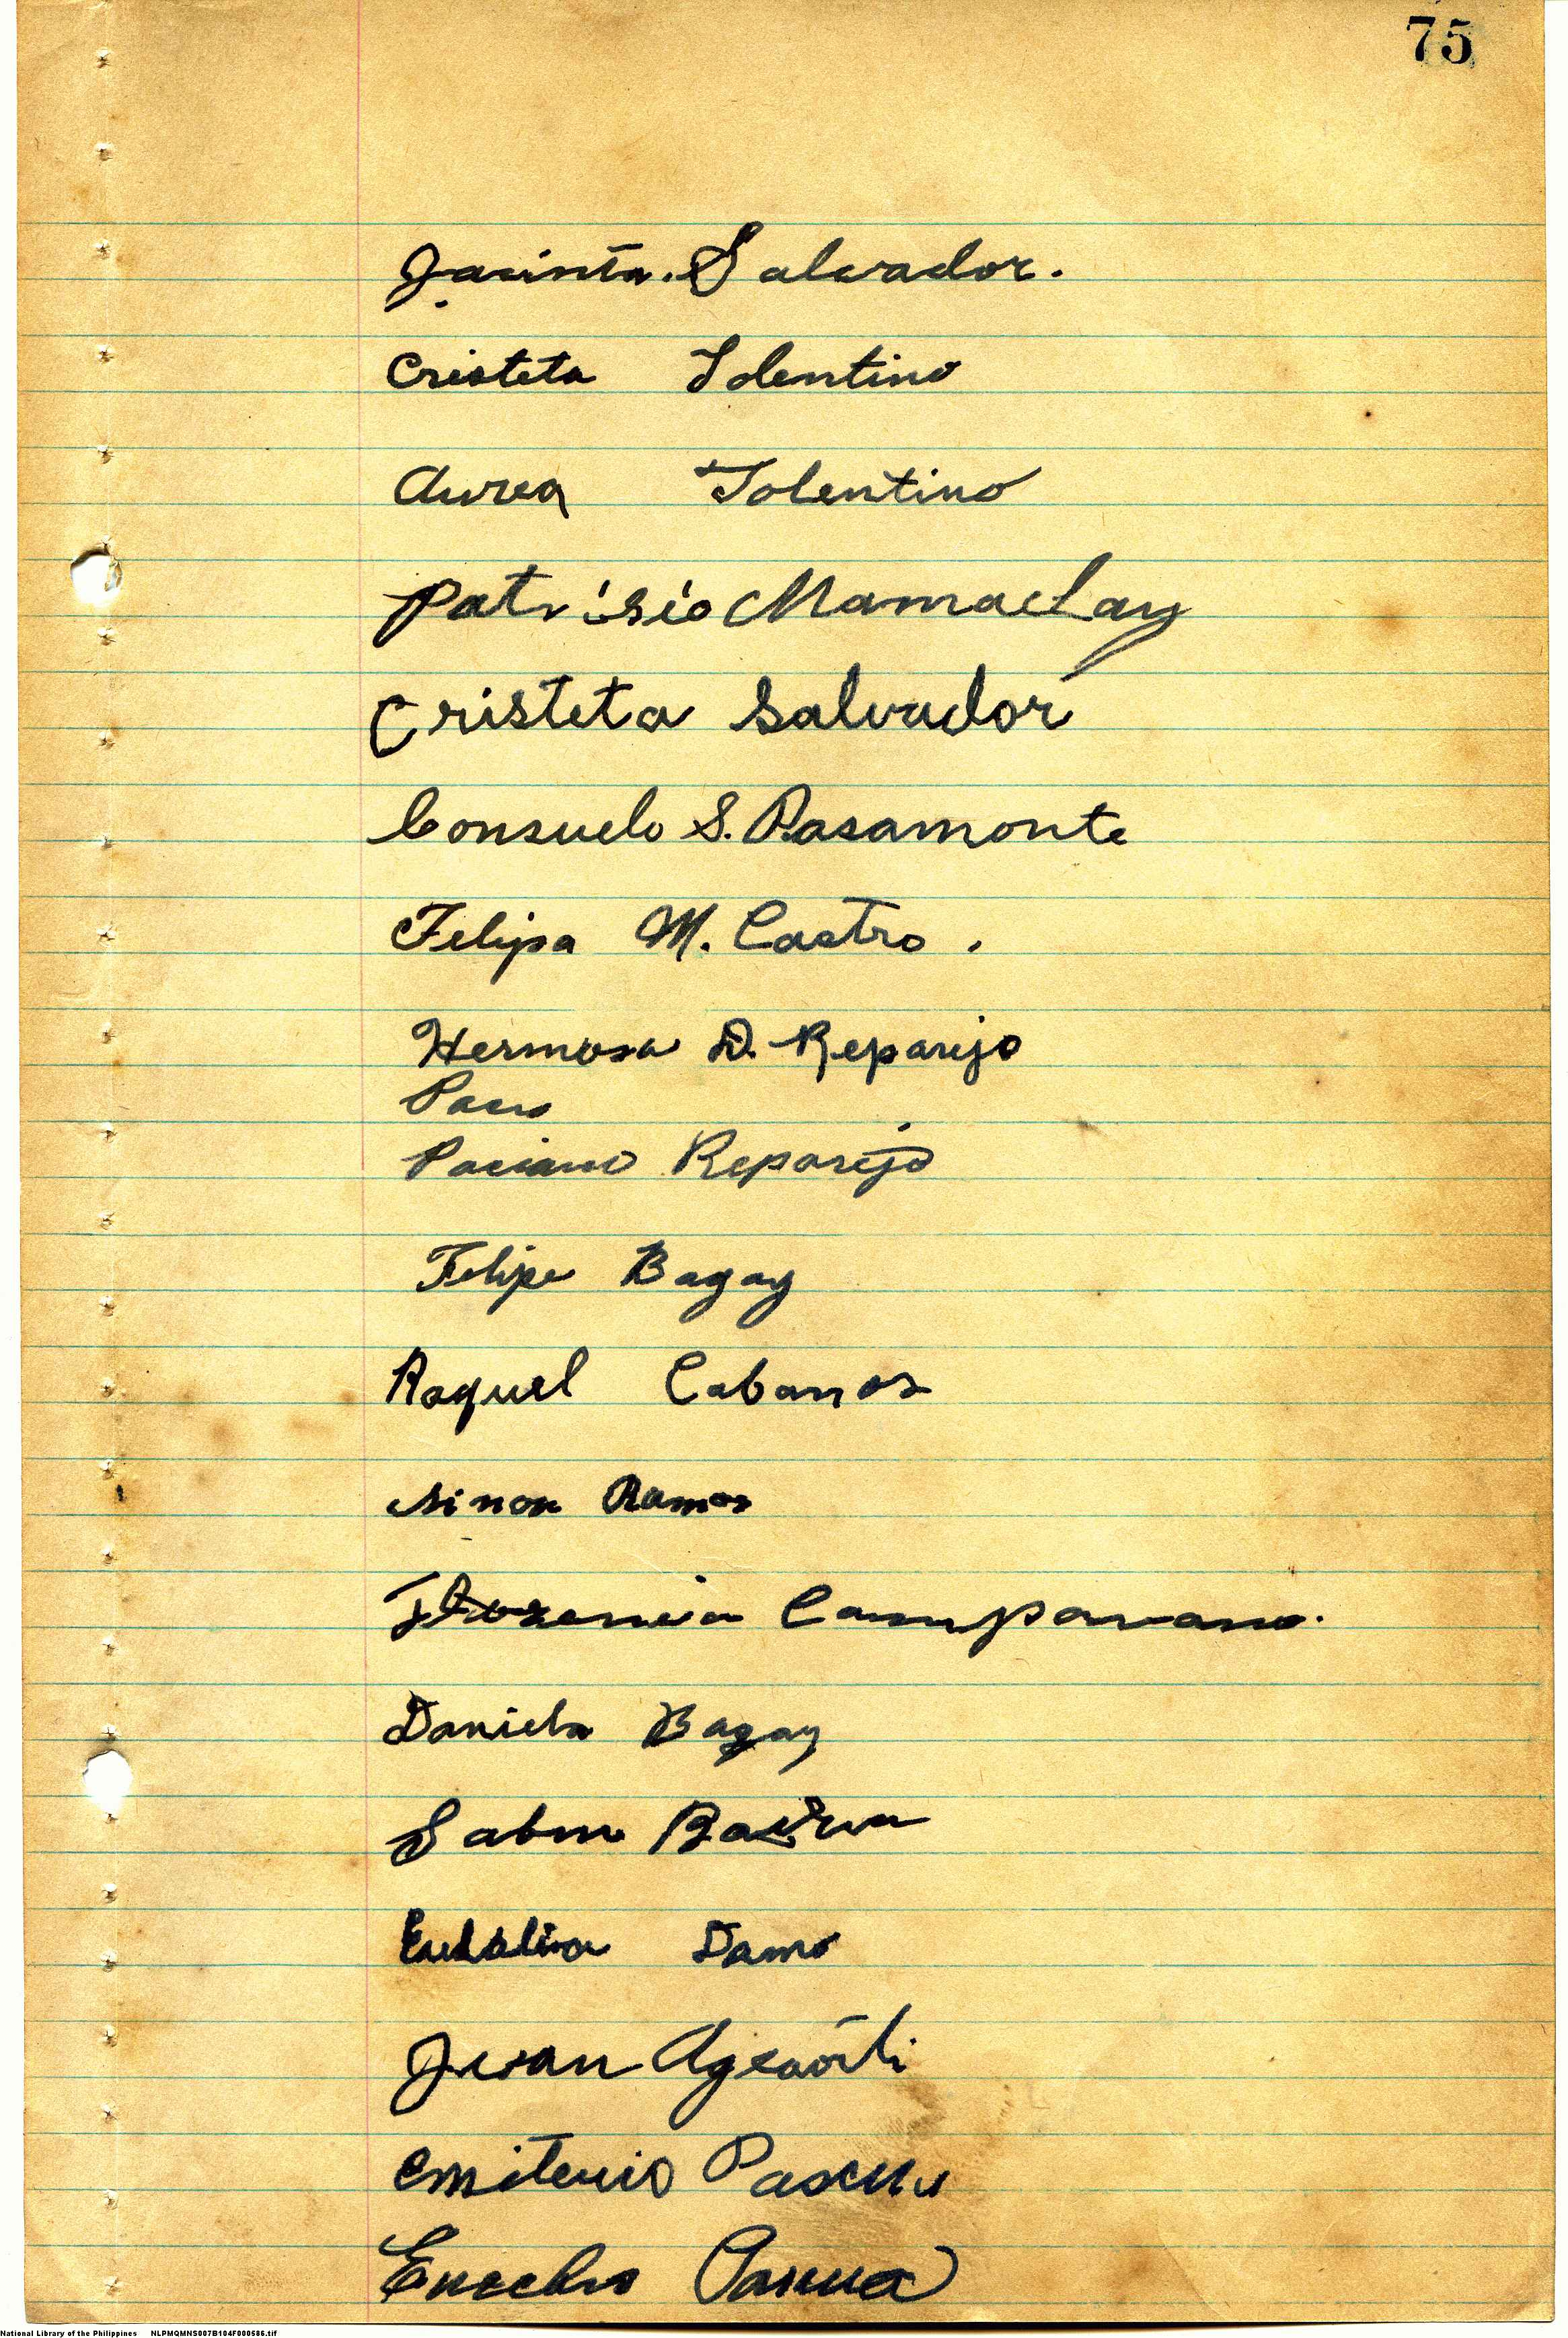 75
Jacinta. Salvador.
Cristeta Tolentino
Aurea Tolentino
Patrisio Mamaclay
Cristeta Salvador
Consuelo S. Pasamonte
Felipa M. Castro.
Hermosa D. Reparejo
Paciano Reparejo
Felipe Bagay
Raquel Cabanos
Ramos
Florencia Campanano.
Daniela Bagay
Eulalia Damo
Juan
Emiterio Pascua
Eusebio Pascua
National Library of the Philippines NLPMQMNS007B104F000586.tif